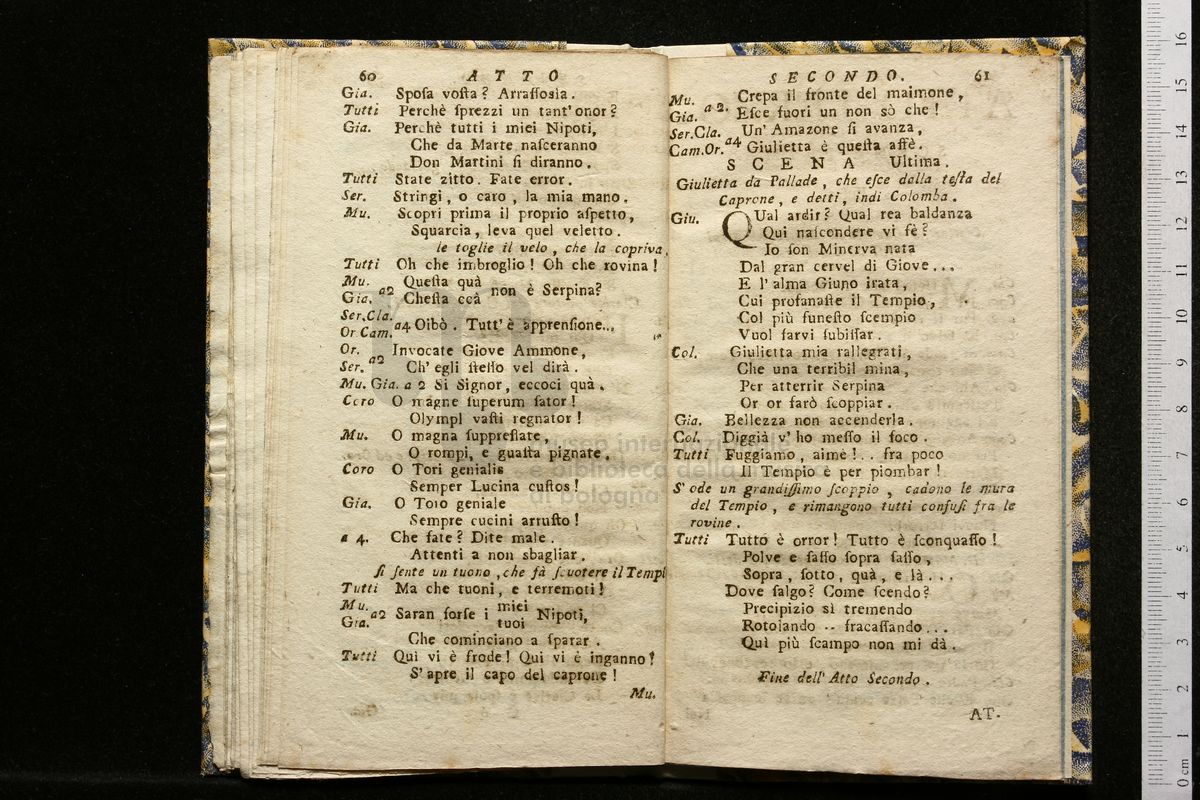 60 ATTO
Gia. Sposa vosta? Arrassosia.
Tutti Perchè sprezzi un tant' onor?
Gia. Perchè tutti i miei Nipoti,
Che da Marte nasceranno
Don Martini si diranno.
Tutti State zitto. Fate error.
Ser. Stringi, o caro, la mia mano.
Mu. Scopri prima il proprio aspetto,
Squarcia, leva quel veletto.
le toglie il velo, che la copriva,
Tutti Oh che imbroglio! Oh che rovina!
Mu. Questa quà
Gia. a2 Chesta ccà non è Serpina?
Ser. Cla.
Or Cam. a4 Oibò. Tutt' è apprensione...
Or. Invocate Giove Ammone,
Ser. a2 Ch' egli stesso vel dirà.
Mu. Gia. a 2 Si Signor, eccoci quà.
Coro O magne superum sator!
Olympl vasti regnator!
Mu. O magna suppressate,
O rompi, e guasta pignate,
Coro O Tori genialis
Semper Lucina custos!
Gia. O Toro geniale
Sempre cucini arrusto!
a 4. Che fate? Dite male.
Attenti a non sbagliar.
si sente un tuono, che fà scuotere il Tempi
Tutti Ma che tuoni, e terremoti!
Mu. miei
Gia. a2 Saran forse i tuoi Nipoti,
Che cominciano a sparar.
Tutti Qui vi è frode! Qui vi è inganno!
S' apre il capo del caprone!
Mu.
SECONDO. 61
Mu. Crepa il fronte del maimone,
Gia. a 2. Esce fuori un non sò che!
Ser. Cla. Un' Amazone si avanza,
Cam. Or. a4 Giulietta è questa affè.
SCENA Ultima.
Giulietta da Pallade, che esce dalla testa del
Caprone, e detti, indi Colomba.
Giu. QUal ardir? Qual rea baldanza
Qui nascondere vi fè?
Io son Minerva nata
Dal gran cervel di Giove...
E l' alma Giuno irata,
Cui profanaste il Tempio,
Col più funesto scempio
Vuol farvi subissar.
Col. Giulietta mia rallegrati,
Che una terribil mina,
Per atterrir Serpina
Or or farò scoppiar.
Gia. Bellezza non accenderla.
Col. Diggià v' ho messo il foco.
Tutti Fuggiamo, aimè!.. fra poco
Il Tempio è per piombar!
S' ode un grandissimo scoppio, cadono le mura
del Tempio, e rimangono tutti confusi fra le
rovine.
Tutti Tutto è orror! Tutto è sconquasso!
Polve e sasso sopra sasso,
Sopra, sotto, quà, e là...
Dove salgo? Come scendo?
Precipizio sì tremendo
Rotolando -- fracassando...
Quì più scampo non mi dà.
Fine dell' Atto Secondo.
AT-
museo internazionale
e biblioteca della musica
di bologna
0 cm 1 2 3 4 5 6 7 8 9 10 11 12 13 14 15 16